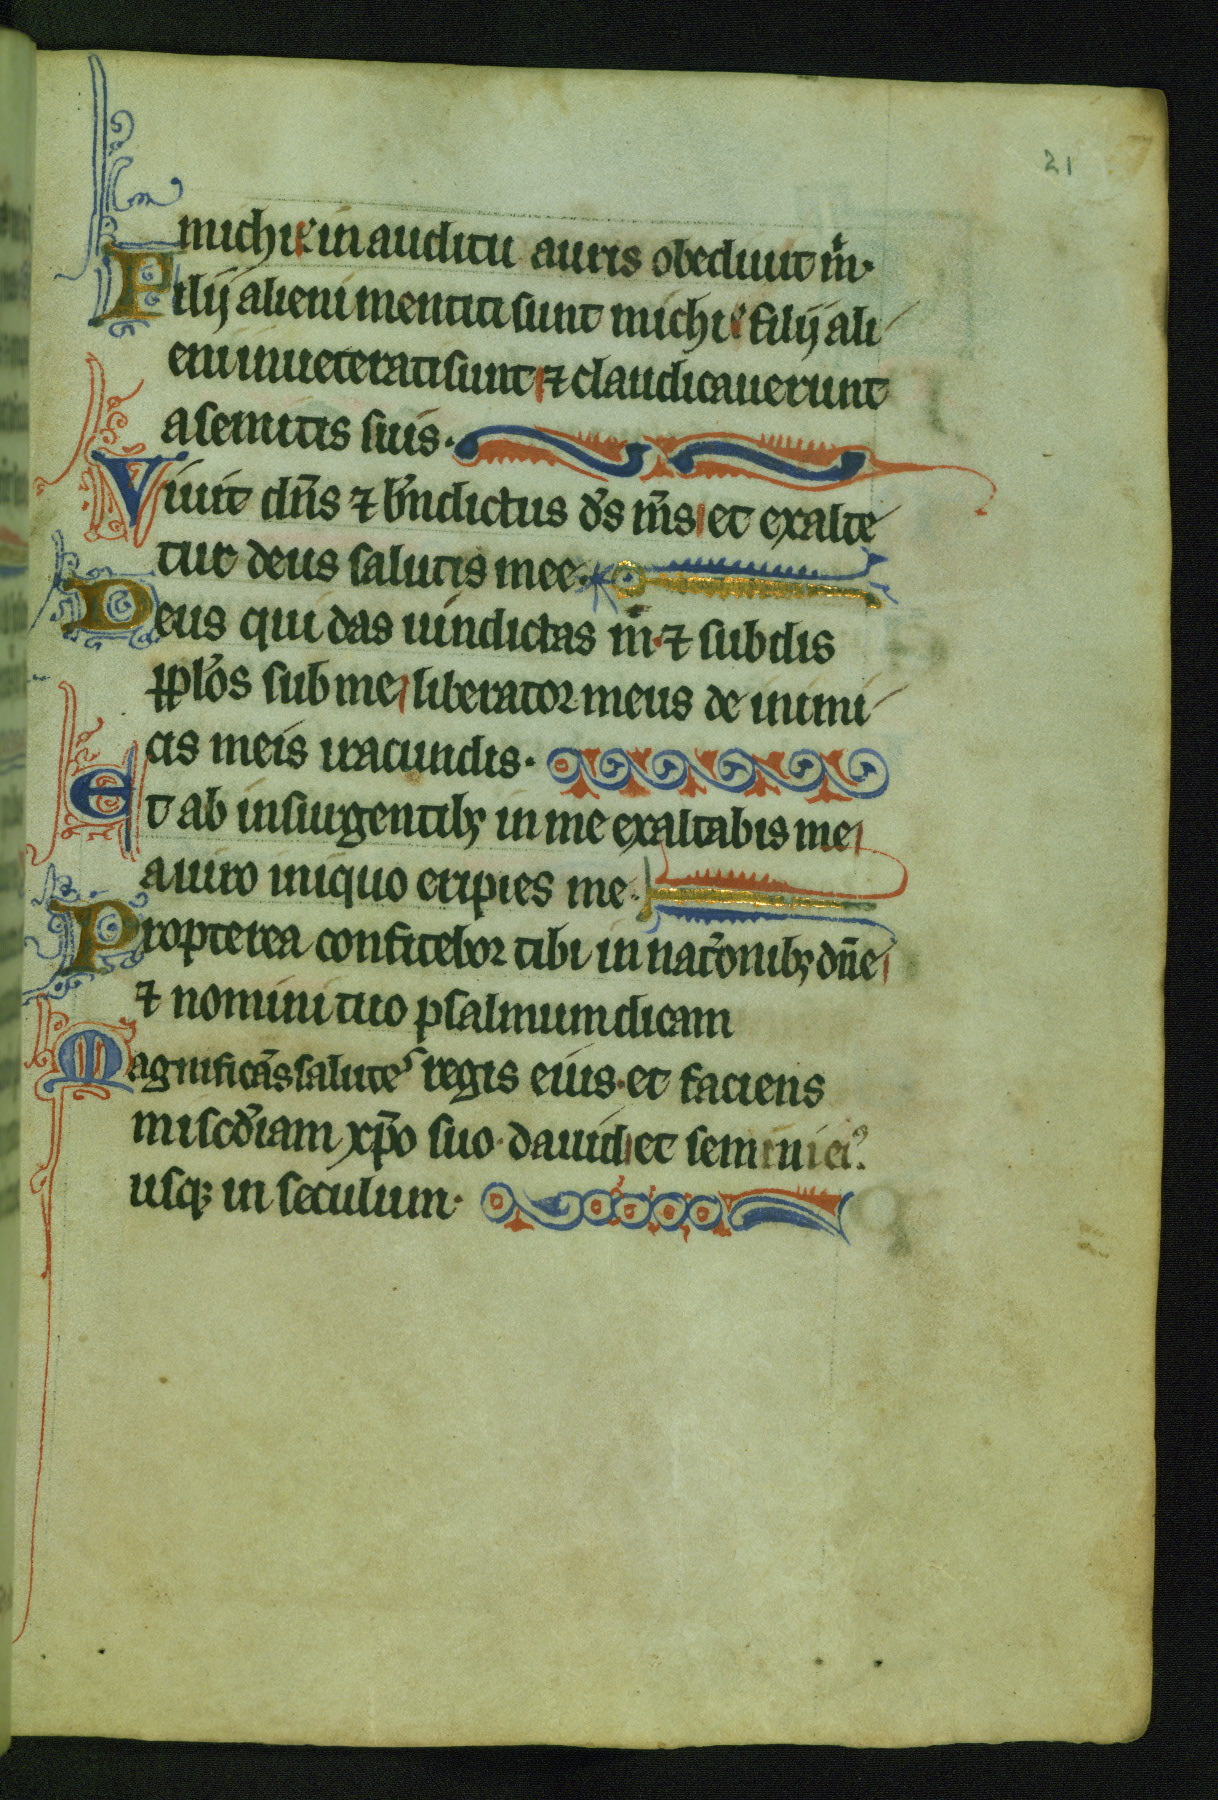 21
michi: in auditu auris obediuit m̄.
Filij alieni mentiti sunt michi: filij ali
eni inueterati sunt ⁊ claudicauerunt
a semitis suis.
Viuit dn̄s ⁊ bn̄dictus d̄s m̄s et exalte
tur deus salutis mee.
Deus qui das uindictas m̄. ⁊ subdis
pp̄los sub me, liberator meus de inimi
cis meis iracundis.
Et ab insurgentibꝫ in me exaltabis me
a uiro iniquo eripies me.
Propterea confitebor tibi in nac̄onibꝫ dn̄e
⁊ nomini tuo psalmum dicam
Magnificās salutes regis eius. et faciens
misc̄diam xp̄o suo. dauid et semini eiꝰ.
usqꝫ in seculum.